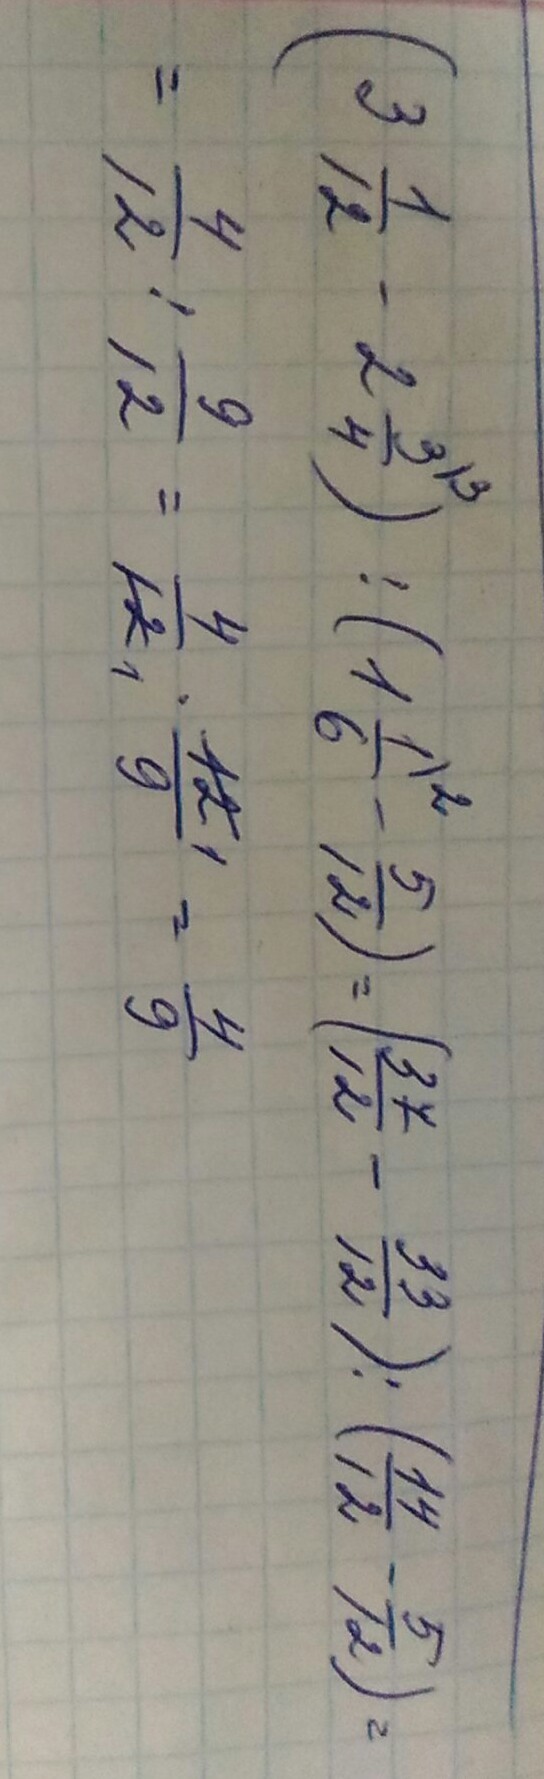 (3 1/12 - 2 3/4 \3) : (1 1/6 \2 - 5/12) = (37/12 - 33/12) : (14/12 - 5/12) =
= 4/12 : 9/12 = 4/12, 1 · 12, 1/9 = 4/9